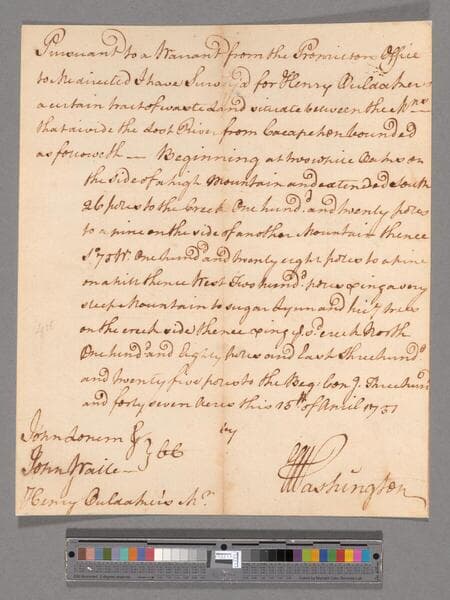 Pursuant to a Warrant from the Proprietors Office
to Me directed I have Survey'd for Henry
a certain tract of waste Land situate between the Mns
that divide the Lost River from Cacapehon bounded
as followeth — Beginning at two white Oaks on
the side of a high Mountain and extended South
26 poles to the Creek One hund.d and twenty poles
to a pine on the side of another Mountain thence
S.o 75 W. One hund.d and twenty eight poles to a pine
on a hill thence West Two hund.d poles Xing a very
steep Mountain to sugar and trees
on the creek side thence Xing s.d creek North
One hund.d and Eighty poles and East Three hund.d
and twenty five poles to the Beg: Con.g Three hund.d
and forty seven Acres this 15th of April 1751
by
John &
John Waite — } CC
Henry Mr
GWashington